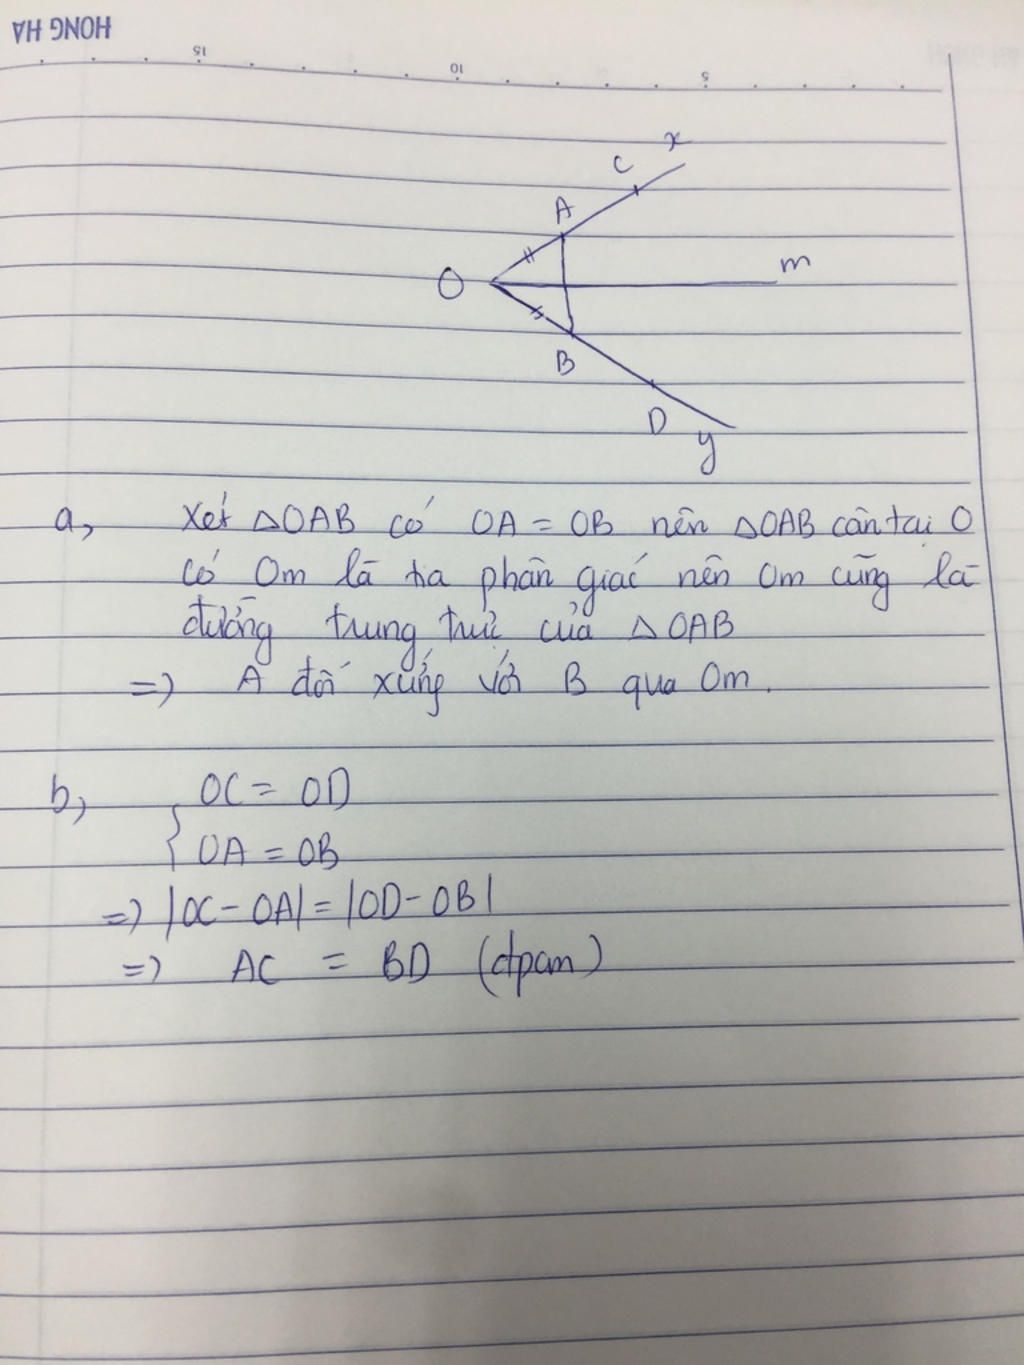 HONG HA
15
10
5
x
C
A
m
O
B
D
y
a, Xét △OAB có OA = OB nên △OAB cân tại O
có Om là tia phân giác nên Om cũng là
đường trung trực của △OAB
=> A đối xứng với B qua Om.
b, OC = OD
OA = OB
=> |OC - OA| = |OD - OB|
=> AC = BD (đpcm)